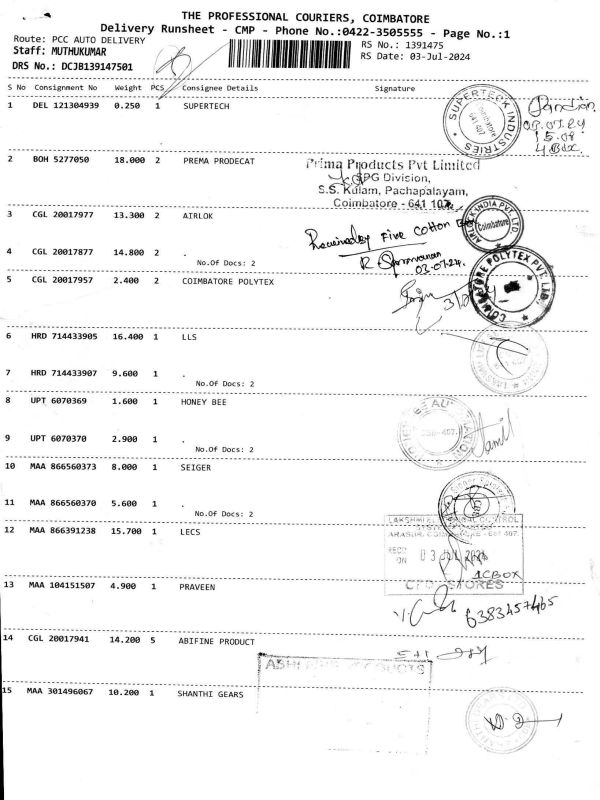 THE PROFESSIONAL COURIERS, COIMBATORE
Delivery Runsheet - CMP - Phone No.:0422-3505555 - Page No.:1
Route: PCC AUTO DELIVERY
RS No.: 1391475
Staff: MUTHUKUMAR
RS Date: 03-Jul-2024
DRS No.: DCJB139147501
S No Consignment No Weight PCS Consignee Details Signature
1 DEL 121304939 0.250 1 SUPERTECH
SUPERTECK INDUSTRIES
Coimbatore
641 407
15.08
4 Box
2 BOH 5277050 18.000 2 PREMA PRODECAT
Prima Products Pvt Limited
SPG Division,
S.S. Kulam, Pachapalayam,
Coimbatore - 641 107.
3 CGL 20017977 13.300 2 AIRLOK
AIRLOCK INDIA PVT. LTD
Coimbatore
Received by Five Cotton Box
4 CGL 20017877 14.800 2 .
No.Of Docs: 2
R. Saravanan
03.07.24.
5 CGL 20017957 2.400 2 COIMBATORE POLYTEX
COIMBATORE POLYTEX PVT. LTD.
6 HRD 714433905 16.400 1 LLS
7 HRD 714433907 9.600 1 .
No.Of Docs: 2
8 UPT 6070369 1.600 1 HONEY BEE
9 UPT 6070370 2.900 1 .
No.Of Docs: 2
Tamil
10 MAA 866560373 8.000 1 SEIGER
11 MAA 866560370 5.600 1 .
No.Of Docs: 2
12 MAA 866391238 15.700 1 LECS
LAKSHMI ELECTRICAL CONTROL
ARASUR, COIMBATORE - 641 407.
RECD ON 03 JUL 2024
4CBOX
STORES
13 MAA 104151507 4.900 1 PRAVEEN
6383457465
14 CGL 20017941 14.200 5 ABIFINE PRODUCT
15 MAA 301496067 10.200 1 SHANTHI GEARS